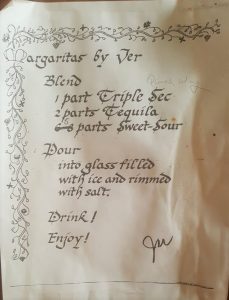 Margaritas by Jer
Blend
1 part Triple Sec
2 parts Tequila
parts Sweet-Sour
Pour
into glass filled
with ice and rimmed
with salt.
Drink!
Enjoy!